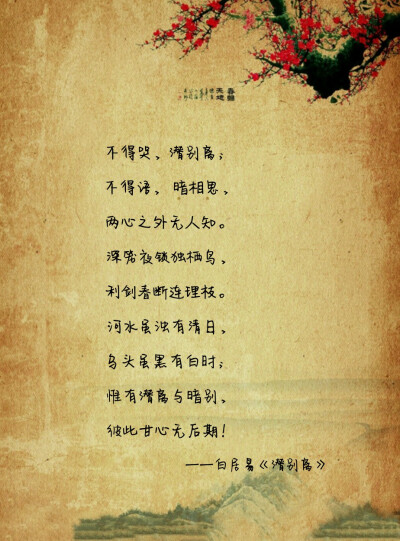 春晖
天地
不得哭、潜别离；
不得语、暗相思、
两心之外无人知。
深笼夜锁独栖鸟、
利剑春断连理枝。
河水虽浊有清日、
乌头虽黑有白时；
惟有潜离与暗别、
彼此甘心无后期！
——白居易《潜别离》